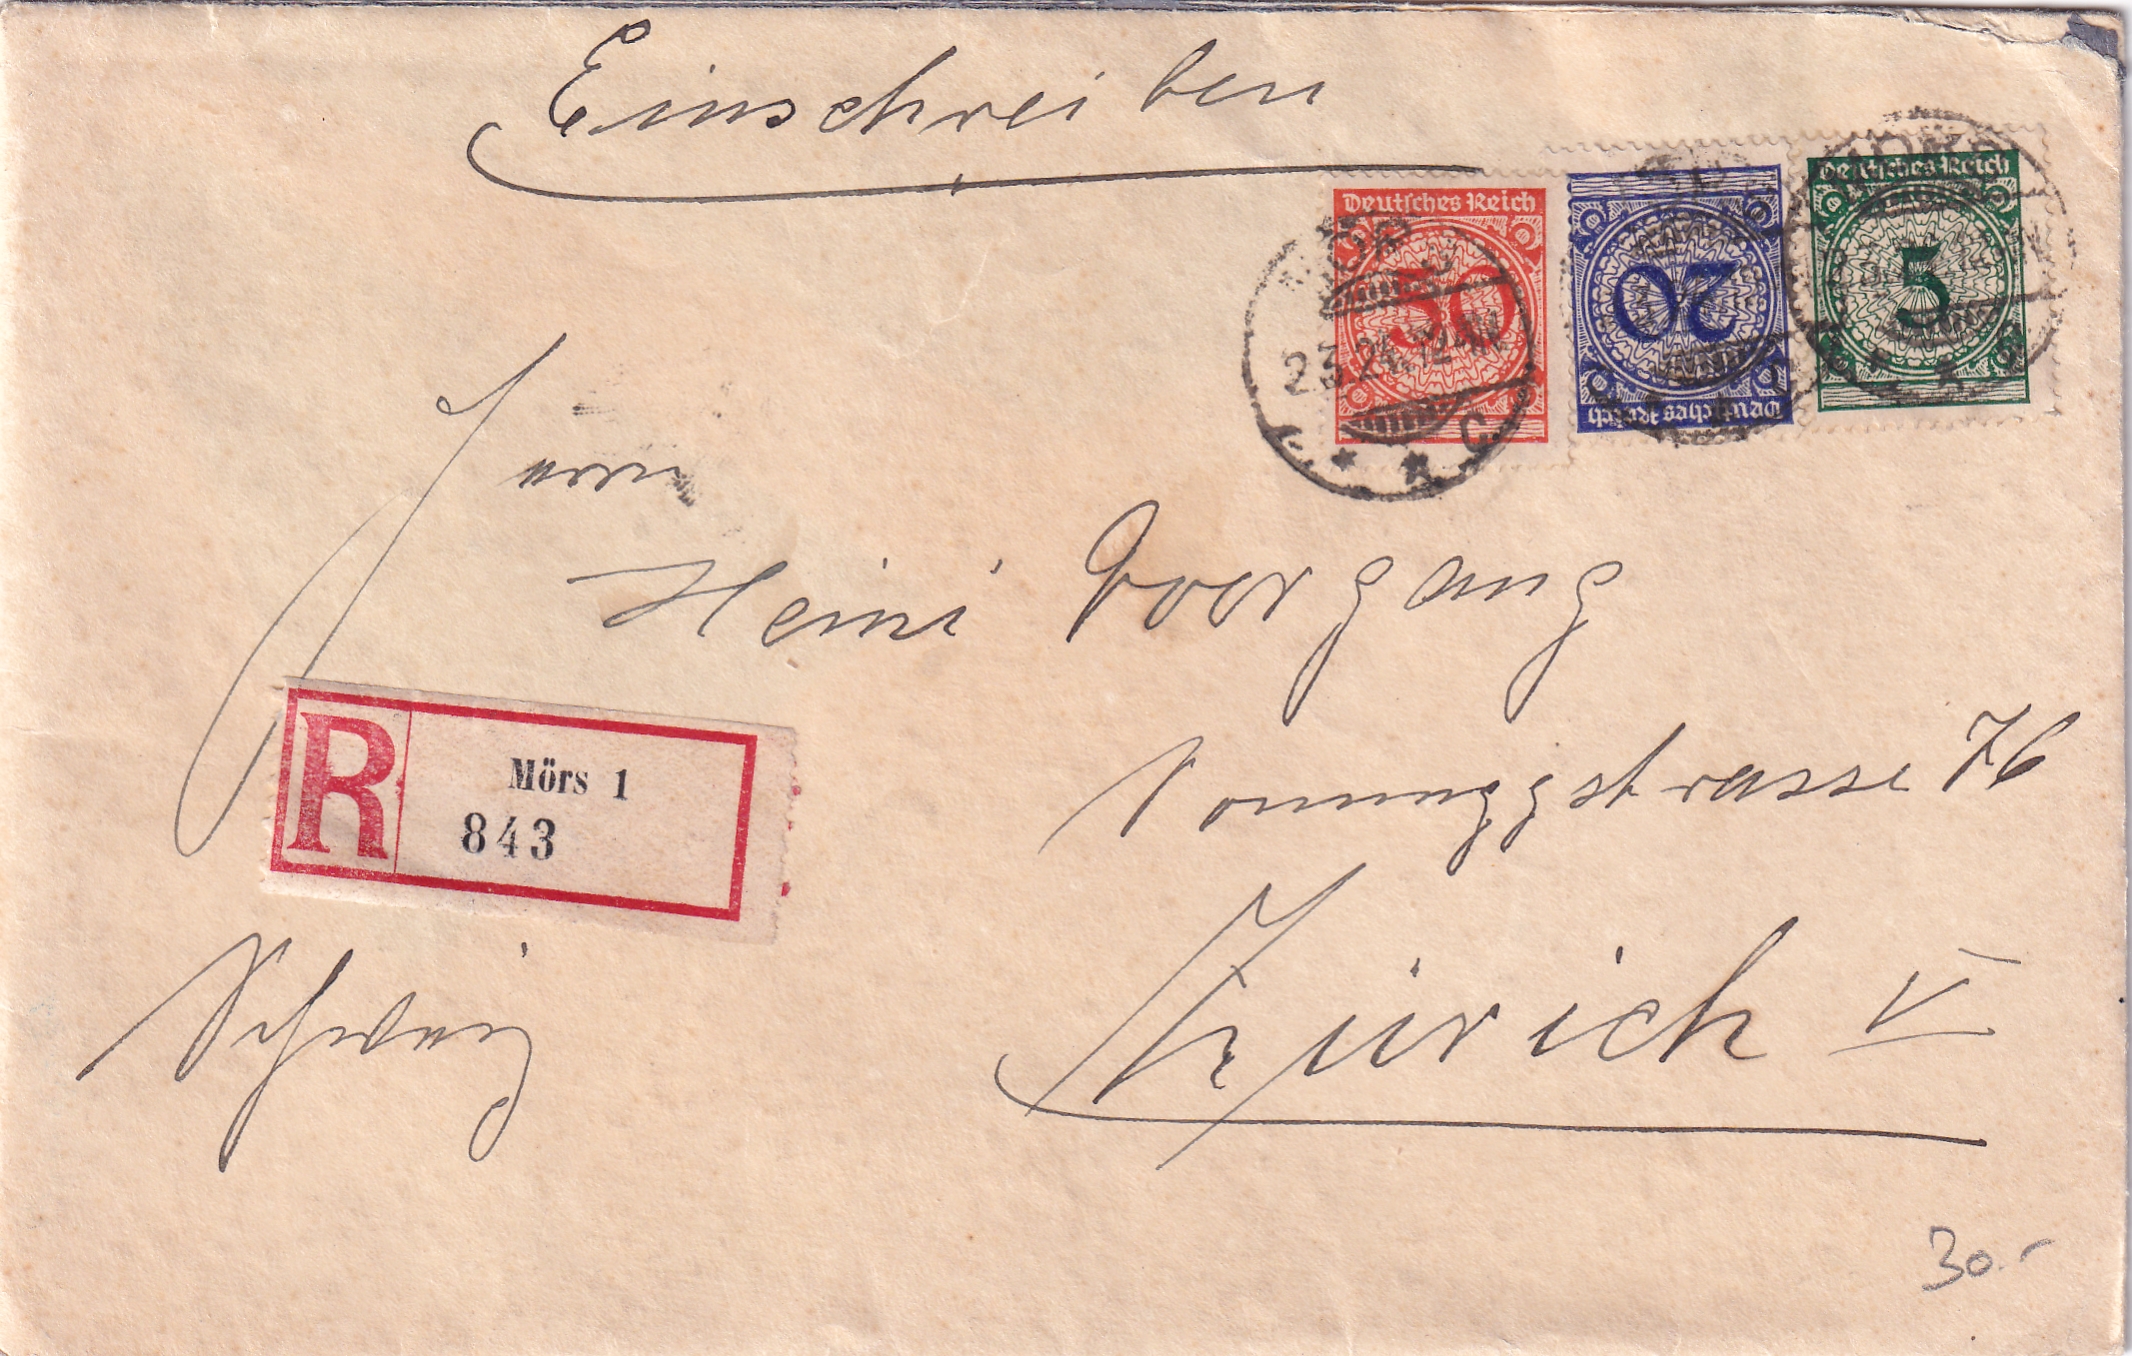 Einschreiben
Deutsches Reich
50
Deutsches Reich
20
Deutsches Reich
5
2.3.24.12-1N
* * C
Herrn
Heini
R
Mörs 1
843
strasse 76
Zürich V
Schweiz
30.-